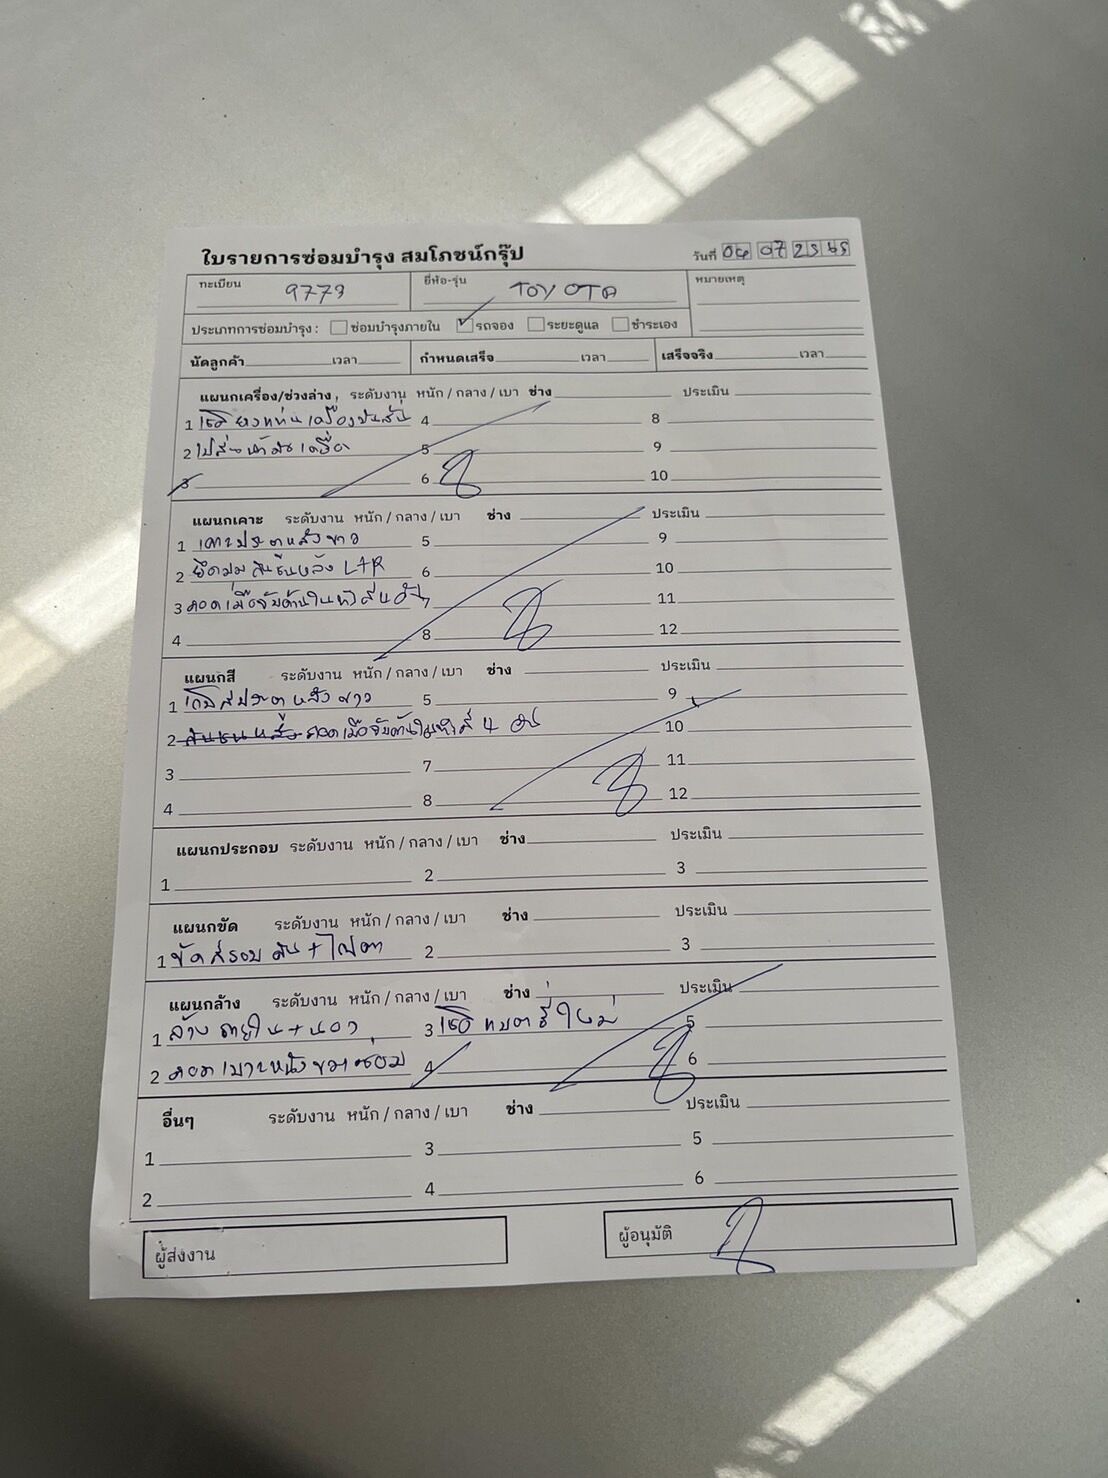 ใบรายการซ่อมบำรุง สมโภชน์กรุ๊ป วันที่ 07
ทะเบียน 9773 ยี่ห้อ-รุ่น TOYOTA หมายเหตุ
ประเภทการซ่อมบำรุง : ซ่อมบำรุงภายใน รถจอง ระยะดูแล ชำระเอง
นัดลูกค้า เวลา กำหนดเสร็จ เวลา เสร็จจริง เวลา
แผนกเครื่อง/ช่วงล่าง , ระดับงาน หนัก / กลาง / เบา ช่าง ประเมิน
1 4 8
2 5 9
3 6 10
แผนกเคาะ ระดับงาน หนัก / กลาง / เบา ช่าง ประเมิน
1 เคาะประตูหลังขาว 5 9
2 หลัง L+R 6 10
3 ถอดมือจับด้านในทั้งสี่ 7 11
4 8 12
แผนกสี ระดับงาน หนัก / กลาง / เบา ช่าง ประเมิน
1 เก็บสีประตูหลังขาว 5 9
2 ถอดมือจับด้านในทั้งสี่ 4 อัน 10
3 7 11
4 8 12
แผนกประกอบ ระดับงาน หนัก / กลาง / เบา ช่าง ประเมิน
1 2 3
แผนกขัด ระดับงาน หนัก / กลาง / เบา ช่าง ประเมิน
1 ขัดสีรอบคัน + ไฟตา 2 3
แผนกล้าง ระดับงาน หนัก / กลาง / เบา ช่าง ประเมิน
1 ล้างภายใน + นอก 3 แบตเตอรี่ใหม่ 5
2 ถอดเบาะหนัง ซ่อม 4 6
อื่นๆ ระดับงาน หนัก / กลาง / เบา ช่าง ประเมิน
1 3 5
2 4 6
ผู้ส่งงาน ผู้อนุมัติ